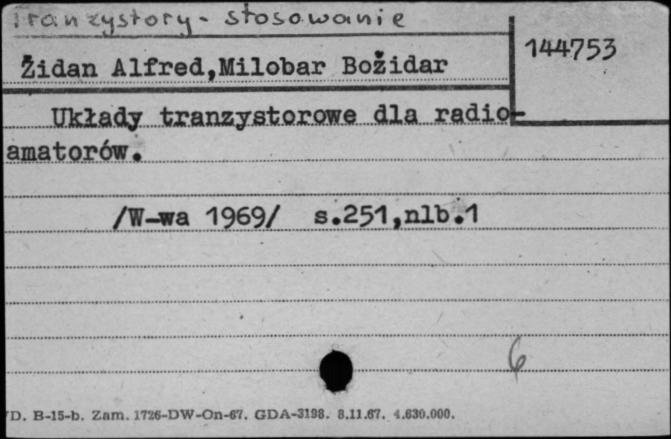 Tranzystory - stosowanie
144753
Židan Alfred,Milobar Božidar
Układy tranzystorowe dla radio-
amatorów.
/W-wa 1969/ s.251,nlb.1
6
D. B-15-b. Zam. 1726-DW-On-67. GDA-3198. 8.11.67. 4.630.000.